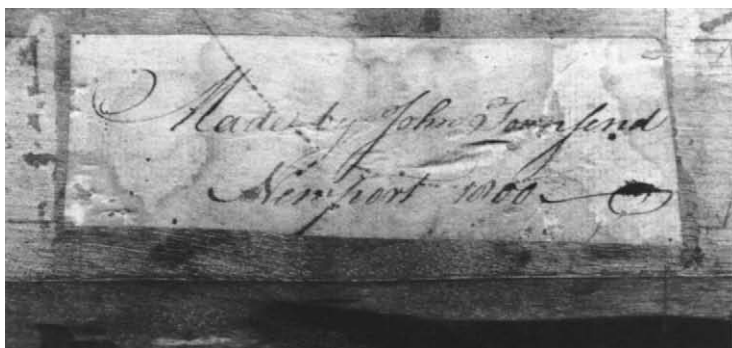 Made by John Townsend
Newport 1800